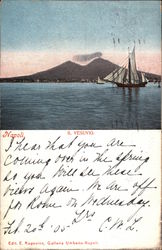 Napoli
IL VESUVIO
I hear that you are
coming over in the spring
so you will see these
views again. We are off
for Rome on Wednesday.
Feb 20th '05
C.W.L.
Edit. E. Ragozino, Galleria Umberto-Napoli